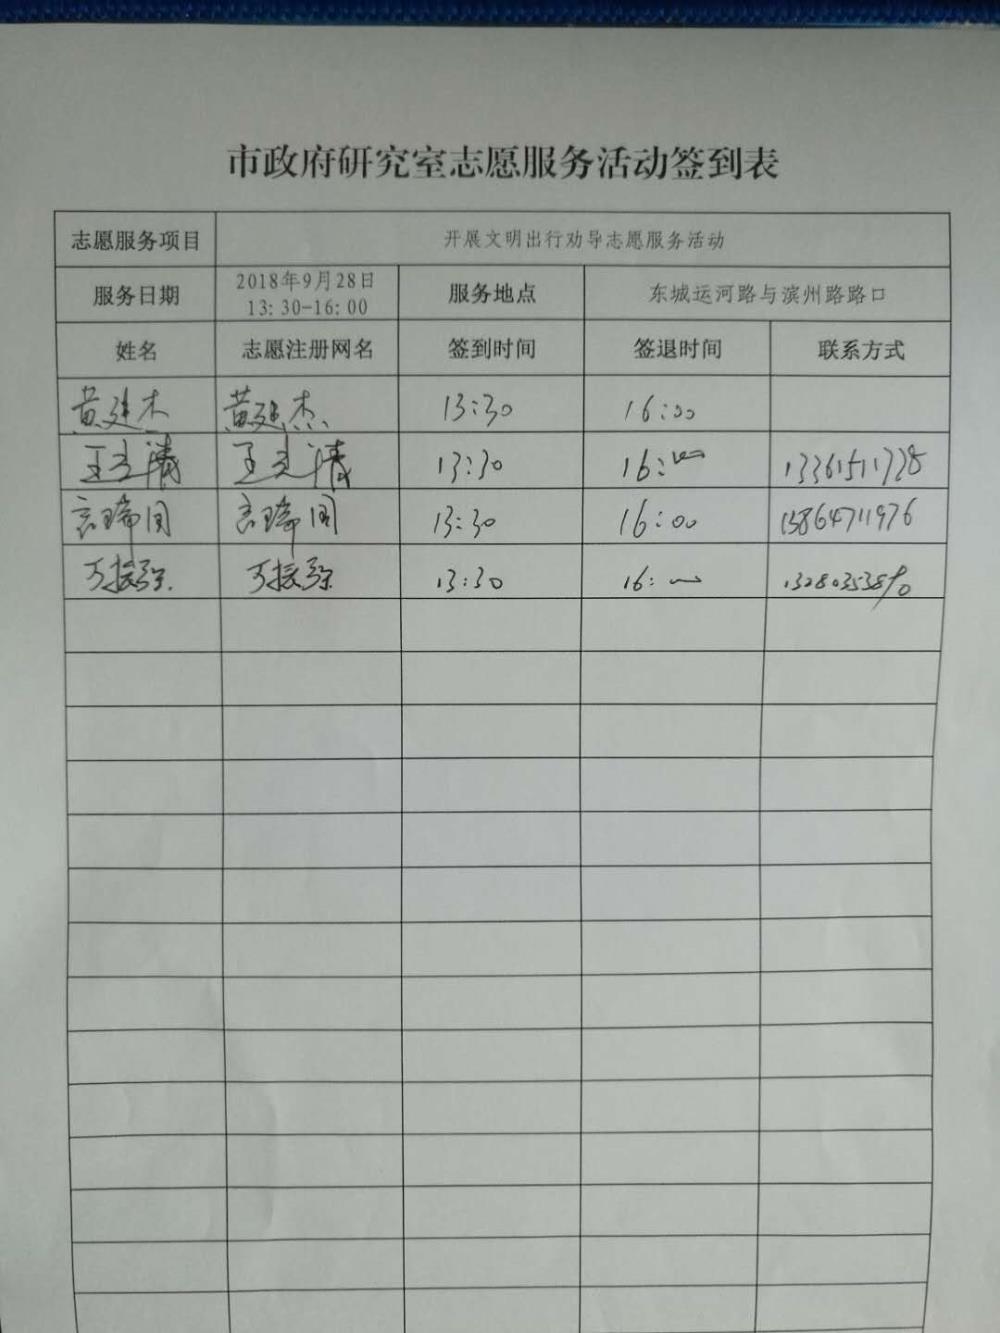 市政府研究室志愿服务活动签到表
志愿服务项目 开展文明出行劝导志愿服务活动
服务日期 2018年9月28日 13:30-16:00 服务地点 东城运河路与滨州路路口
姓名 志愿注册网名 签到时间 签退时间 联系方式
黄建杰 黄建杰 13:30 16:00
王立清 王立清 13:30 16:00 13361511728
13:30 16:00 15864711976
13:30 16:00